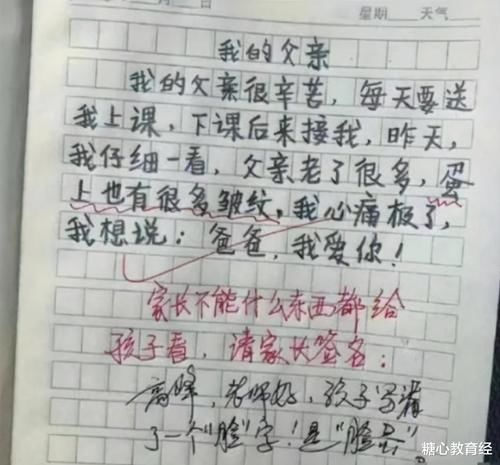 日 星期 天气
我的父亲
我的父亲很辛苦,每天要送
我上课,下课后来接我,昨天,
我仔细一看,父亲老了很多,蛋
上也有很多皱纹,我心痛极了,
我想说:爸爸,我爱你!
家长不能什么东西都给
孩子看,请家长签名:
高峰,老师好,孩子写错
了一个“脸”字!是“脸蛋”。
糖心教育经